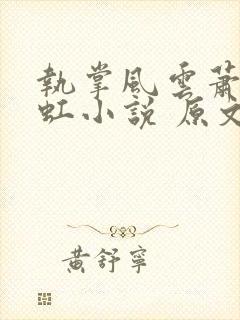 執掌風雲蕭
虹小說 原文
黃舒寧